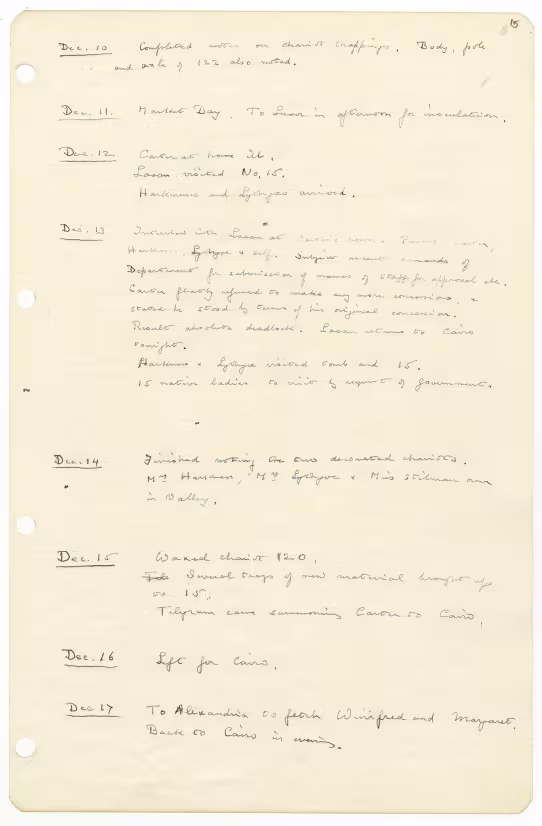 15
Dec. 10 Completed notes on chariot trappings. Body, pole
and axle of 122 also noted.
Dec. 11. Market Day. To Luxor in afternoon for inoculation.
Dec. 12 Carter at home ill.
Lacau visited No. 15.
Harkness and Lythgoe arrived.
Dec. 13 Interview with Lacau at Carter's house. Present Carter,
Harkness, Lythgoe & self. Subject recent demands of
Department for submission of names of staff for approval etc.
Carter flatly refused to make any more concessions, &
stated he stood by terms of his original concession.
Result absolute deadlock. Lacau returns to Cairo
tonight.
Harkness & Lythgoe visited tomb and 15.
15 native ladies to visit by request of Government.
Dec. 14 Finished noting the two decorated chariots.
Mrs Harkness, Mrs Lythgoe & Miss Stillman over
in Valley.
Dec. 15 Waxed chariot 120.
Several trays of new material brought up
to 15.
Telegram came summoning Carter to Cairo.
Dec. 16 Left for Cairo.
Dec 17 To Alexandria to fetch Winifred and Margaret.
Back to Cairo in evening.